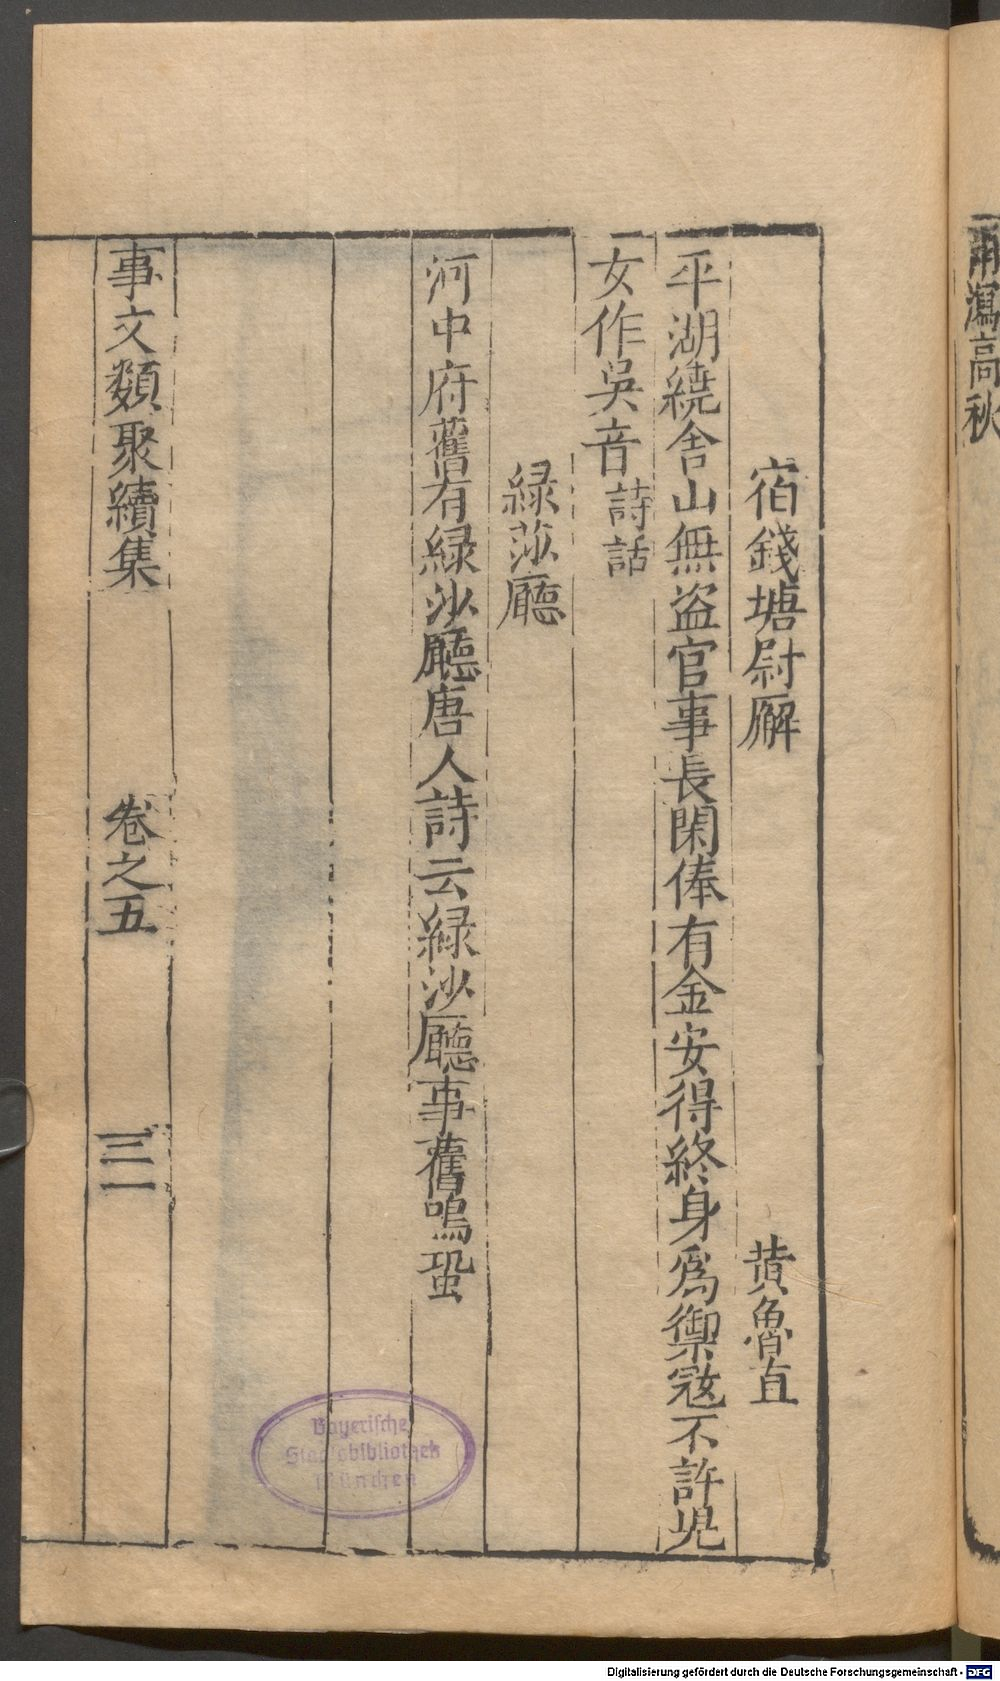 宿錢塘尉廨　黃魯直
平湖繞舍山無盜官事長閑俸有金安得終身爲禦寇不許児
女作吳音詩話
緑莎廳
河中府舊有緑沙廳唐人詩云緑沙廳事舊鳴蛩
事文類聚續集　卷之五　三一
高秋
Bayerische
Staatsbibliothek
München
Digitalisierung gefördert durch die Deutsche Forschungsgemeinschaft - DFG